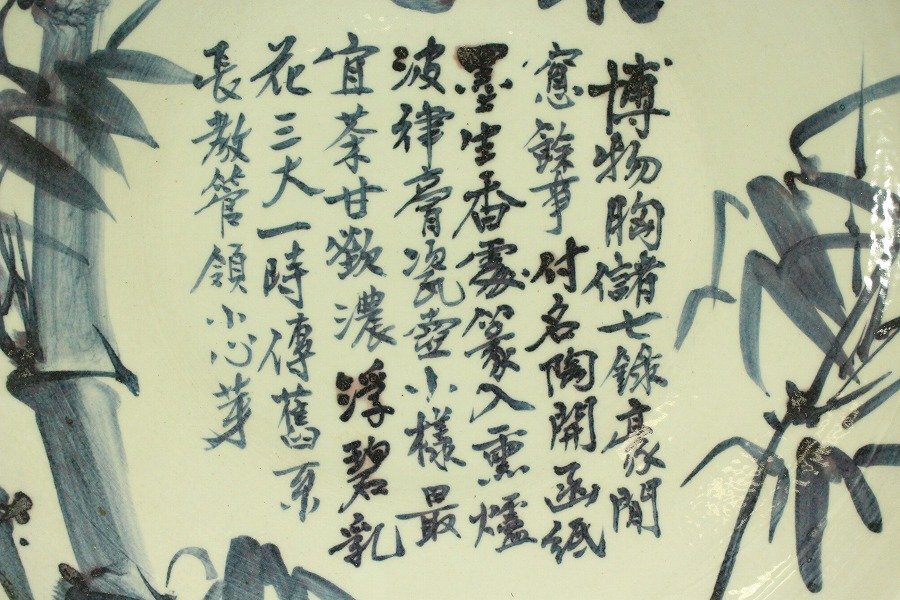 博物胸儲七錄豪閒
窓餘事付名陶開函紙
墨生香處篆入熏爐
波律膏瓷壺小樣最
宜茶甘歠濃浮碧乳
花三大一時傳舊系
長教管領小心芽